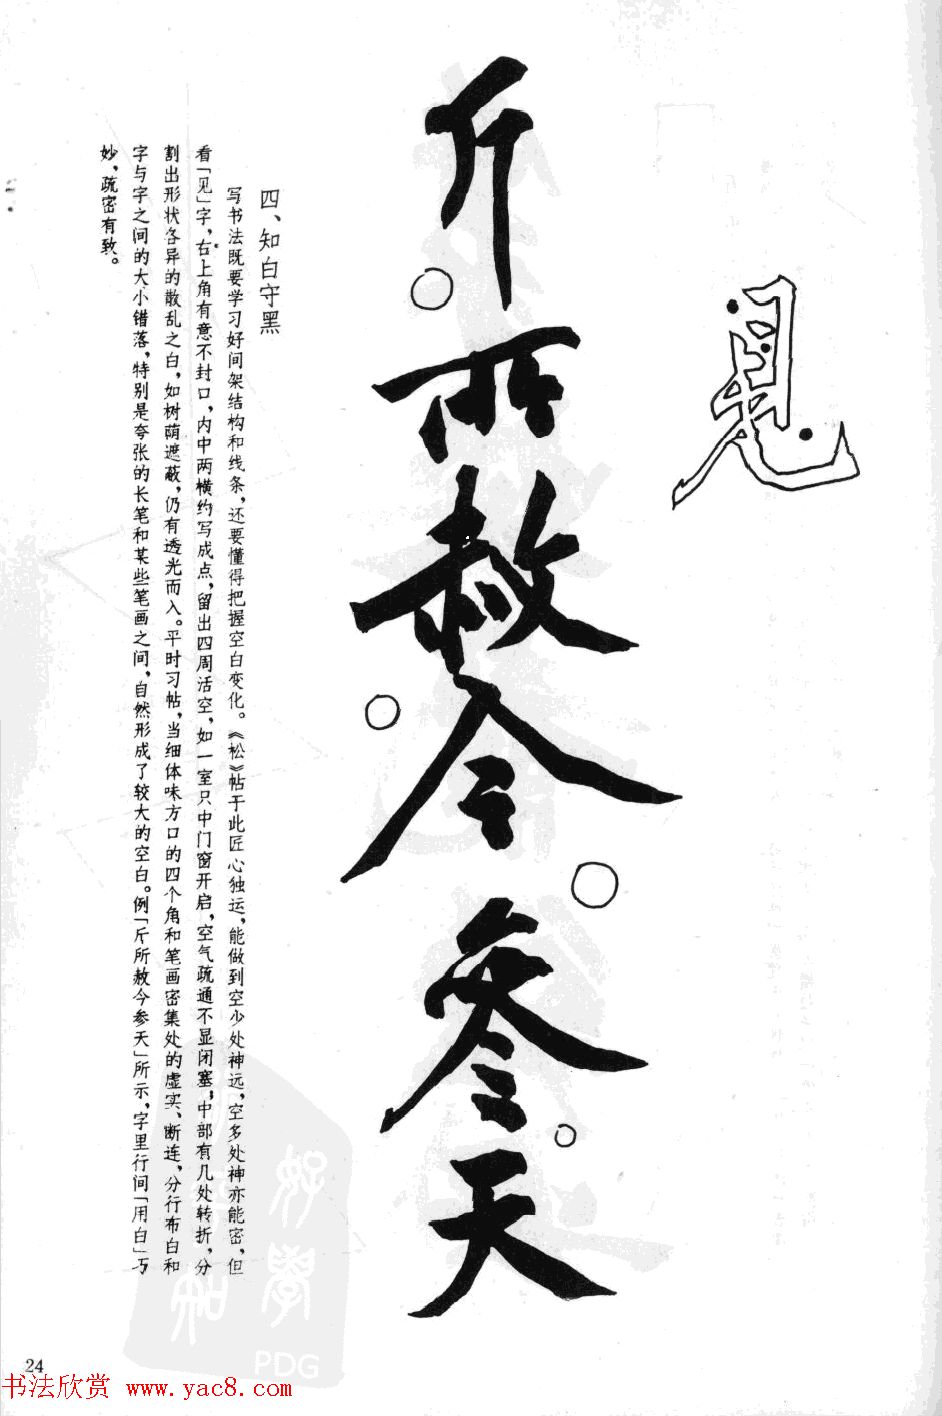 见
斤所赦今参天
四、知白守黑
写书法既要学习好间架结构和线条，还要懂得把握空白变化。《松》帖于此匠心独运，能做到空少处神远，空多处神亦能密，但
看「见」字，右上角有意不封口，内中两横约写成点，留出四周活空，如一室只中门窗开启，空气疏通不显闭塞；中部有几处转折，分
割出形状各异的散乱之白，如树荫遮蔽，仍有透光而入。平时习帖，当细体味方口的四个角和笔画密集处的虚实、断连，分行布白和
字与字之间的大小错落，特别是夸张的长笔和某些笔画之间，自然形成了较大的空白。例「斤所赦今参天」所示，字里行间「用白」巧
妙，疏密有致。
24
好学
PDG
书法欣赏 www.yac8.com